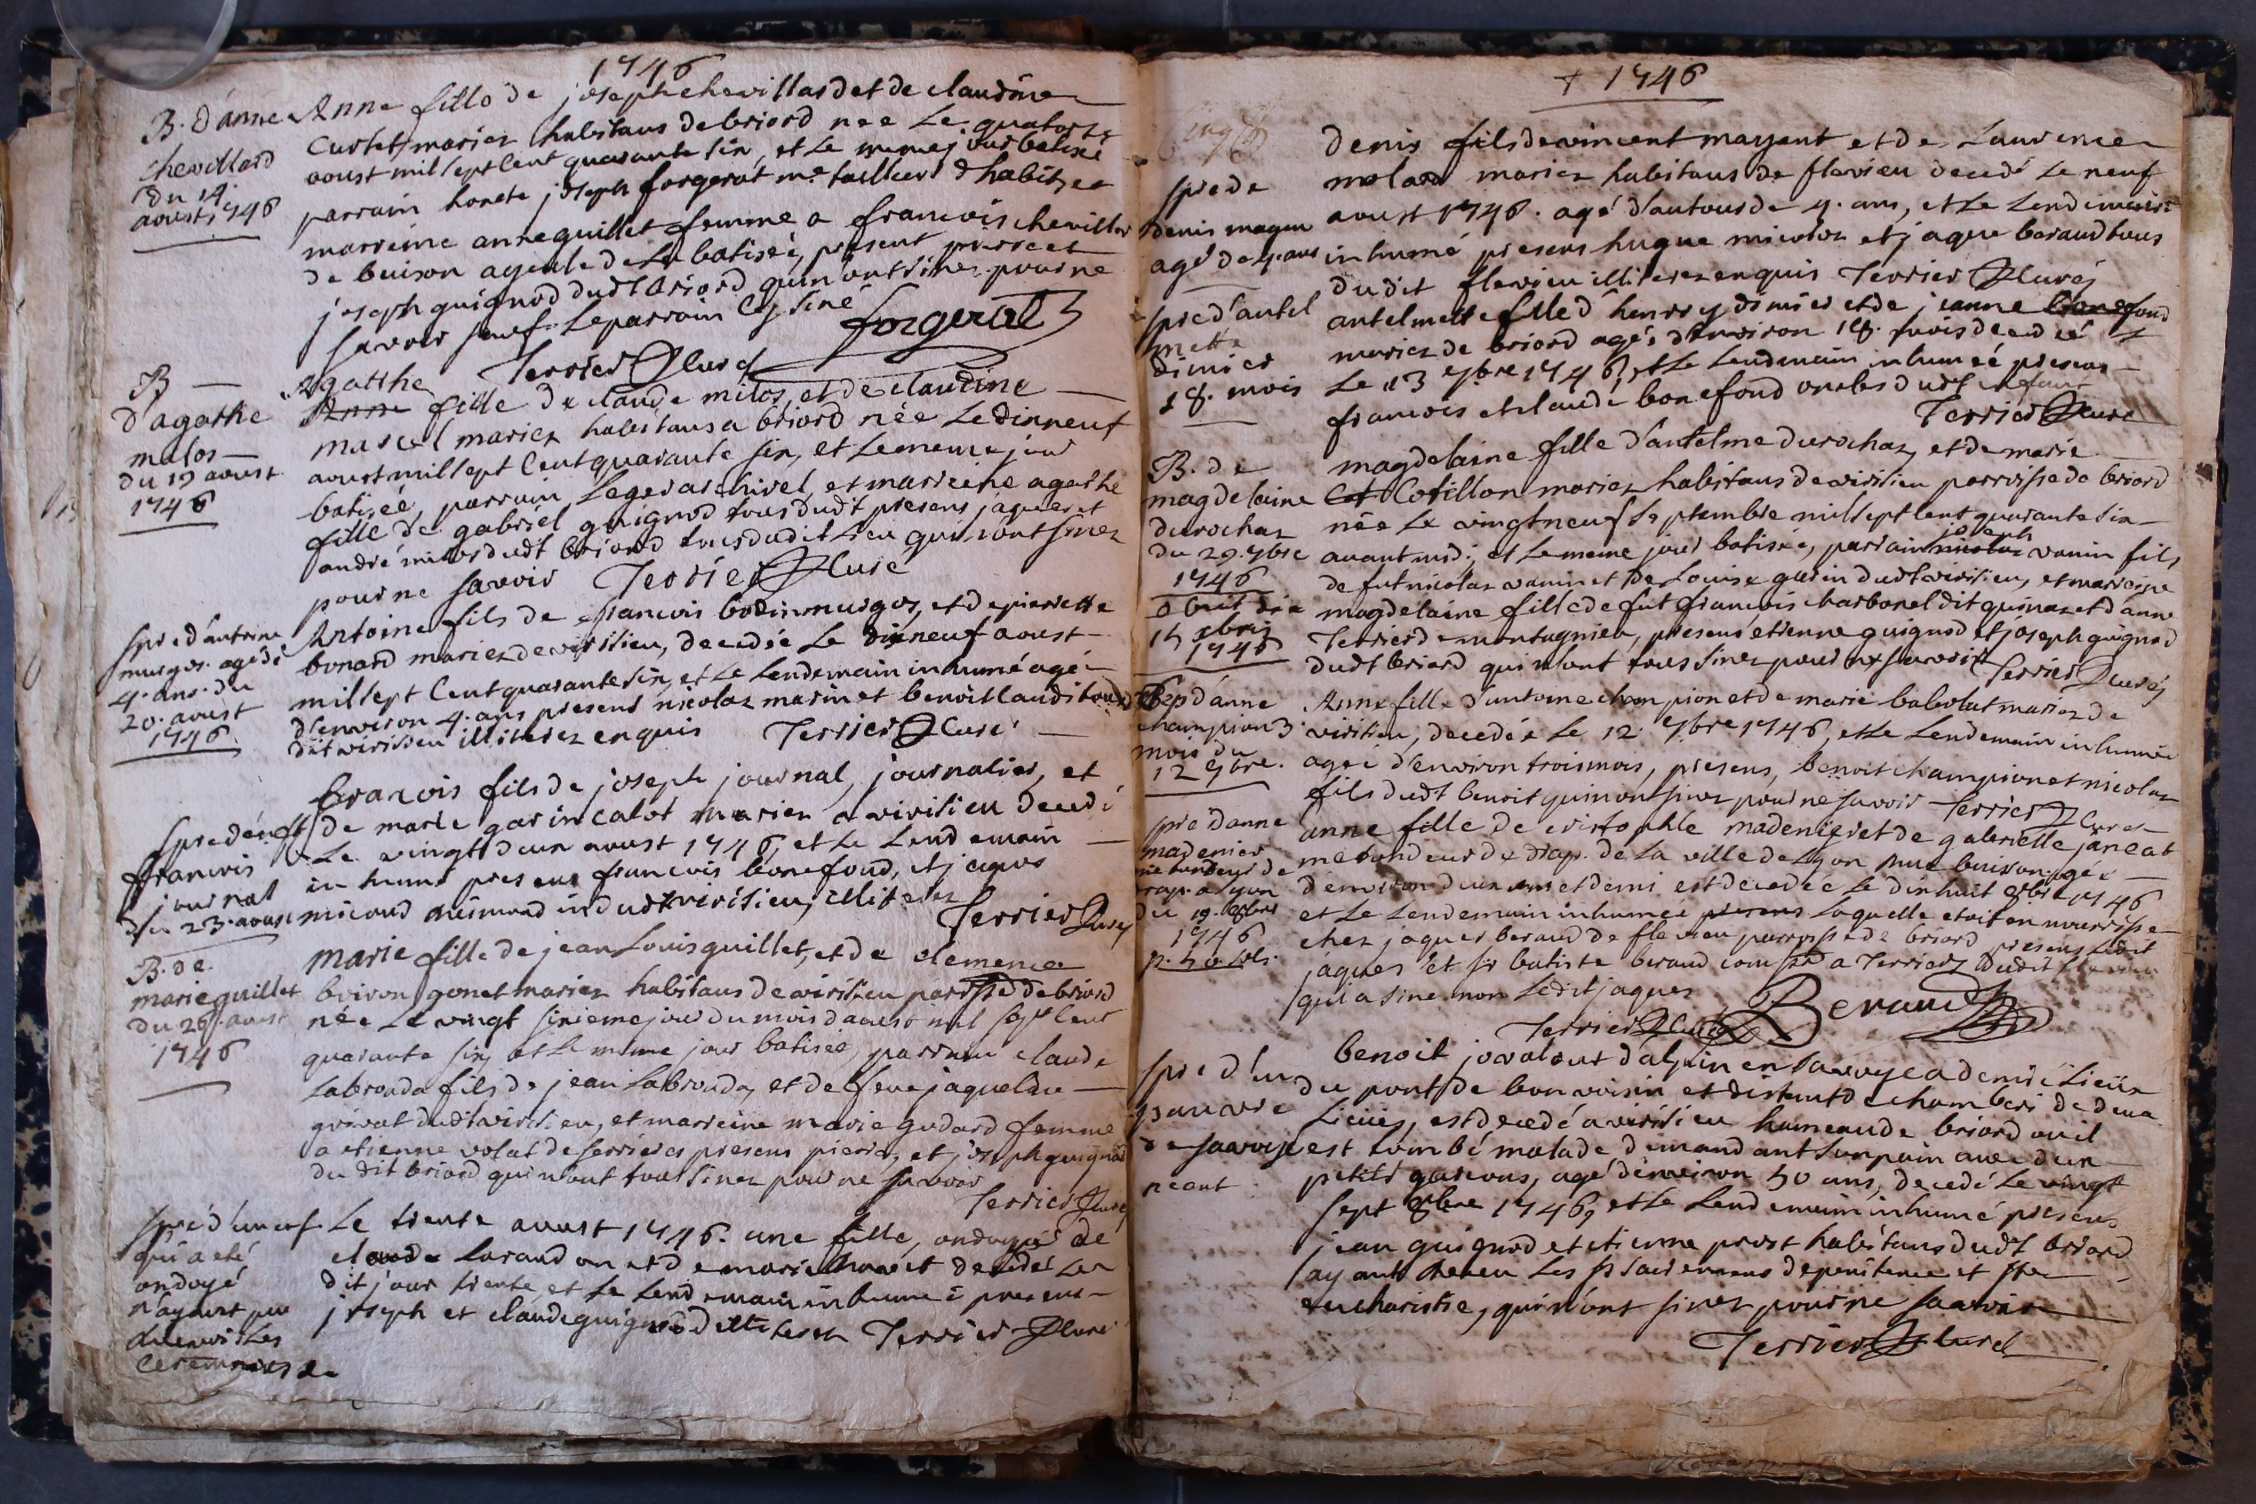 1746
B. d'anne
chevillard
du 14
aoust 1746
Anne fille de joseph chevillard et de claudine
Curtet mariez habitans de briord née Le quatorze
aoust mil sept Cent quarante six, et Le meme jour batisée
parrain honete joseph forgerat me tailleur d'habits et
marreine anne guillet femme a francois chevillar
de buison ayeule de La batisée, present pierre et
joseph guignod dudt briord qui n'ont sinez pour ne
savoir sauf Le parrain Cy siné
forgerat
Terrier Curé
B
d'agathe
milos
du 19 aoust
1746
Agathe
Anne fille de claude milos, et de claudine
marcel mariez habitans a briord née Le dixneuf
aoust mil sept Cent quarante six, et Le meme jour
batisée, parrain Leger archirel et marreine agathe
fille de gabriel guignod tous dudt presens jaques et
andré milos dudt briord tous dudit Lieu qui n'ont sinez
pour ne savoir Terrier Curé
spre d'antoine
murgos agé de
4. ans. du
20. aoust
1746
Antoine fils de francois bodin murgos, et de pierrette
bonard mariez de virisieu, decedée Le dixneuf aoust
mil sept Cent quarante six, et Le Lendemain inhumé agé
d'environ 4. ans presens nicolas marin et benoit
dit virisieu illiterez enquis Terrier Curé
spre de
francois
journal
du 23. aoust
francois fils de joseph journal, journalier, et
de marie garin calot mariez a virisieu decedé
Le vingt deux aoust 1746, et Le Lendemain
inhumé presens francois bonefond, et jaques
micoud dudt virisieu, illiterez
Terrier Curé
B. de
marie guillet
du 26. aoust
1746
marie fille de jean Louis guillet, et de clemence
boiron gonet mariez habitans de virisieu parrisse de briord
née Le vingt sixieme jour du mois d'aoust mil sept Cent
quarante six et Le meme jour batisée, parrain claude
Labronda fils de jean Labronda, et de feue jaqueline
grivat dudt virisieu, et marreine marie gudard femme
a etienne volat de serrieres presens pierre, et joseph guignod
du dit briord qui n'ont tous sinez pour ne savoir
Terrier Curé
spre d'un enf
qui a eté
ondoyé
n'ayant pu
recevoir Les
Ceremonies
Le trente aoust 1746. une fille, ondoyée de
claude Laraud on et de marie decedée Le
dit jour trente et Le Lendemain inhumée presens
joseph et claude guignod illiterez Terrier Curé
+ 1746
spre de
denis mayen
agé de 4. ans
denis fils de vincent mayent et de Laurence
molard mariez habitans de flevieu decedé Le neuf
aoust 1746. agé d'autour de 4. ans, et Le Lendemain
inhumé presens hugue micoloz et jaque beraud tous
du dit flevieu illiterez enquis Terrier Curé
spre d'antel
mette
dimier
18. mois
antelmette fille d'henry dimier et de jeanne bonefond
mariez de briord agée d'environ 18. mois decedée
Le 13 7bre 1746, et Le Lendemain inhumée presens
francois et claude bonefond oncles dudt enfant
Terrier Curé
B. de
magdelaine
durochaz
du 29. 7bre
1746
magdelaine fille d'antelme durochaz, et de marie
Cotillon mariez habitans de virisieu parrisse de briord
née Le vingt neuf septembre mil sept Cent quarante six
avant midi, et Le meme jour batisée, parrain joseph vanin fils
de fut nicolas vanin et de Louise garin dudt virisieu, et marreine
magdelaine fille de fut francois charbonel dit quinaz et d'anne
Terrier de montagnieu, presens etienne guignod et joseph guignod
dudt briord qui n'ont tous sinez pour ne savoir Terrier Curé
1746
sep d'anne
champion 3.
mois du
12 9bre.
Anne fille d'antoine champion et de marie babolat mariez de
virisieu, decedée Le 12. 9bre 1746, et Le Lendemain inhumée
agée d'environ trois mois, presens, benoit champion et nicolas
fils dudt benoit qui n'ont sinez pour ne savoir Terrier Curé
spre d'anne
madenier
me tondeur de
drap a Lyon
du 19. 8bre
1746
p. 50 sols.
anne fille de cristophle madenier et de gabrielle janeat
me tondeur de drap. de La ville de Lyon rue buisson agée
d'environ deux ans et demi est decedée Le dixhuit 8bre 1746
et Le Lendemain inhumée presens Laquelle etoit en nourrisse
chez jaques beraud de flevieu parrisse de briord presens Ledit
jaques et sr batiste beraud dudit flevieu
qui a siné non Ledit jaques
Terrier Curé Beraud
spre d'un
pauvre
de savoye
neant
benoit jovalout d'alpin en savoye a demie Lieüe
du pont de bonvoisin et distant de chamberi de deux
Lieües, est decedé a virisieu hameau de briord ou il
est tombé malade demandant son pain avec deux
petits garcons, agé d'environ 50 ans, decedé Le vingt
sept 8bre 1746, et Le Lendemain inhumé presens
jean guignod et etienne prost habitans dudt briord
ayant receu Les sts sacremens de penitence et ste
eucharistie, qui n'ont sinez pour ne savoir
Terrier Curé